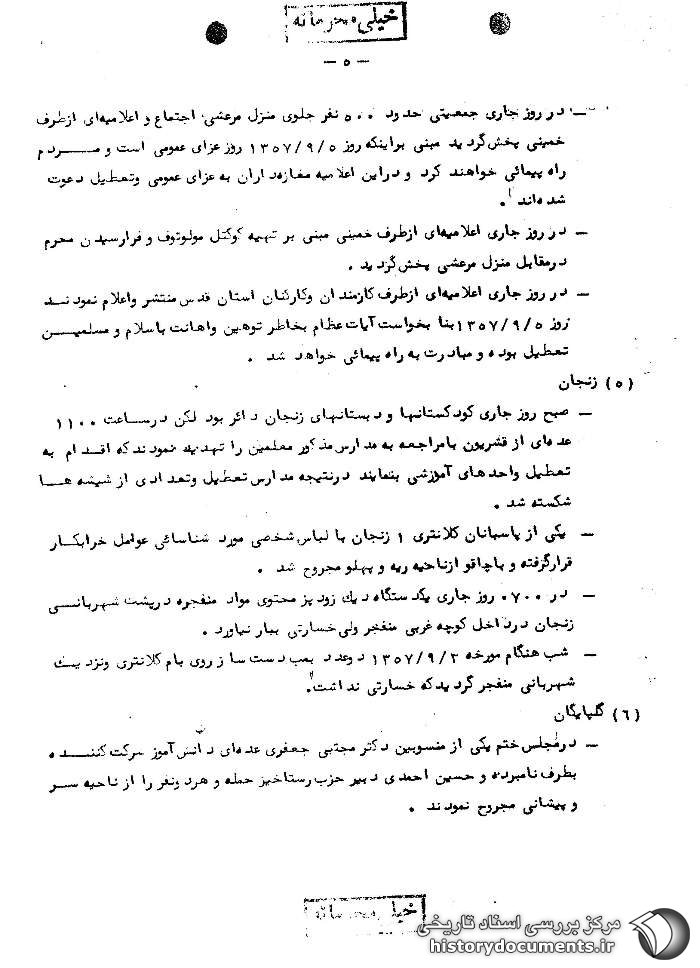 خیلی محرمانه
— ۵ —
— در روز جاری جمعیتی حدود ۵۰۰ نفر جلوی منزل مرعشی اجتماع و اعلامیه‌ای ازطرف
خمینی پخش‌گردید مبنی براینکه روز ۱۳۵۷/۹/۵ روز عزای عمومی است و مردم
راه پیمائی خواهند کرد و دراین اعلامیه مغازه‌داران به عزای عمومی وتعطیل دعوت
شده‌اند .
— در روز جاری اعلامیه‌ای ازطرف خمینی مبنی بر تهیه کوکتل مولوتوف و فرارسیدن محرم
درمقابل منزل مرعشی پخش‌گردید .
— در روز جاری اعلامیه‌ای ازطرف کارمندان وکارکنان استان قدس منتشر واعلام نمودند
روز ۱۳۵۷/۹/۵ بنا بخواست آیات عظام بخاطر توهین واهانت باسلام و مسلمین
تعطیل بوده و مبادرت به راه پیمائی خواهد شد .
(۵) زنجان
— صبح روز جاری کودکستانها و دبستانهای زنجان دائر بود لکن درساعت ۱۱۰۰
عده‌ای از قشریون بامراجعه به مدارس مذکور معلمین را تهدید نمودند که اقدام به
تعطیل واحدهای آموزشی بنمایند درنتیجه مدارس تعطیل وتعدادی از شیشه ها
شکسته شد .
— یکی از پاسبانان کلانتری ۱ زنجان با لباس شخصی مورد شناسائی عوامل خرابکار
قرارگرفته و باچاقو ازناحیه ریه و پهلو مجروح شد .
— در ۰۷۰۰ روز جاری یکدستگاه دیك زودپز محتوی مواد منفجره درپشت شهربانی
زنجان درداخل کوچه غربی منفجر ولی خسارتی ببار نیاورد .
— شب هنگام مورخه ۱۳۵۷/۹/۲ دوعدد بمب دست ساز روی بام کلانتری ونزدیك
شهربانی منفجر گردید که خسارتی نداشت .
(۶) گلپایگان
— درمجلس ختم یکی از منسوبین دکتر مجتبی جعفری عده‌ای دانش‌آموز شرکت کننده
بطرف نامبرده و حسین احمدی دبیر حزب رستاخیز حمله و هردونفر را از ناحیه سر
و پیشانی مجروح نمودند .
خیلی محرمانه
مرکز بررسی اسناد تاریخی
historydocuments.ir